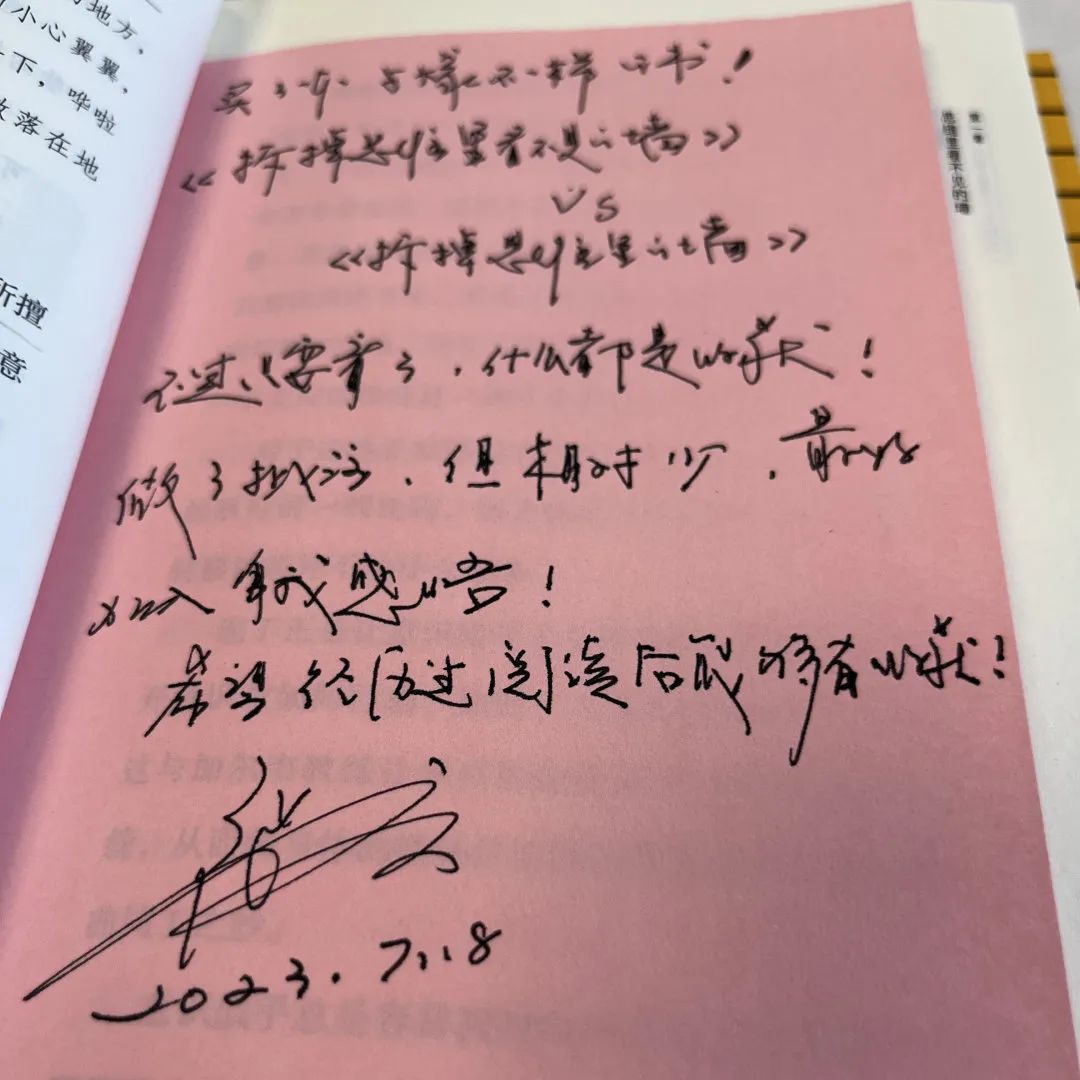 地方,
小心翼翼,
下,哗啦
落在地
所擅
意
第一章
思维里看不见的墙
买了一个与 不一样的书!
《拆掉思维里看不见的墙》
VS
《拆掉思维里的墙》
不过只要看了,什么都是收获!
做了批注,但相对少,最好
加入 感悟!
希望经历过阅读后能够有收获!
2023.7.18